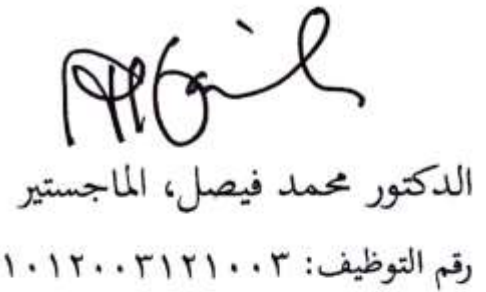 الدكتور محمد فيصل، الماجستير
رقم التوظيف: ١٠١٢٠٠٣١٢١٠٠٣